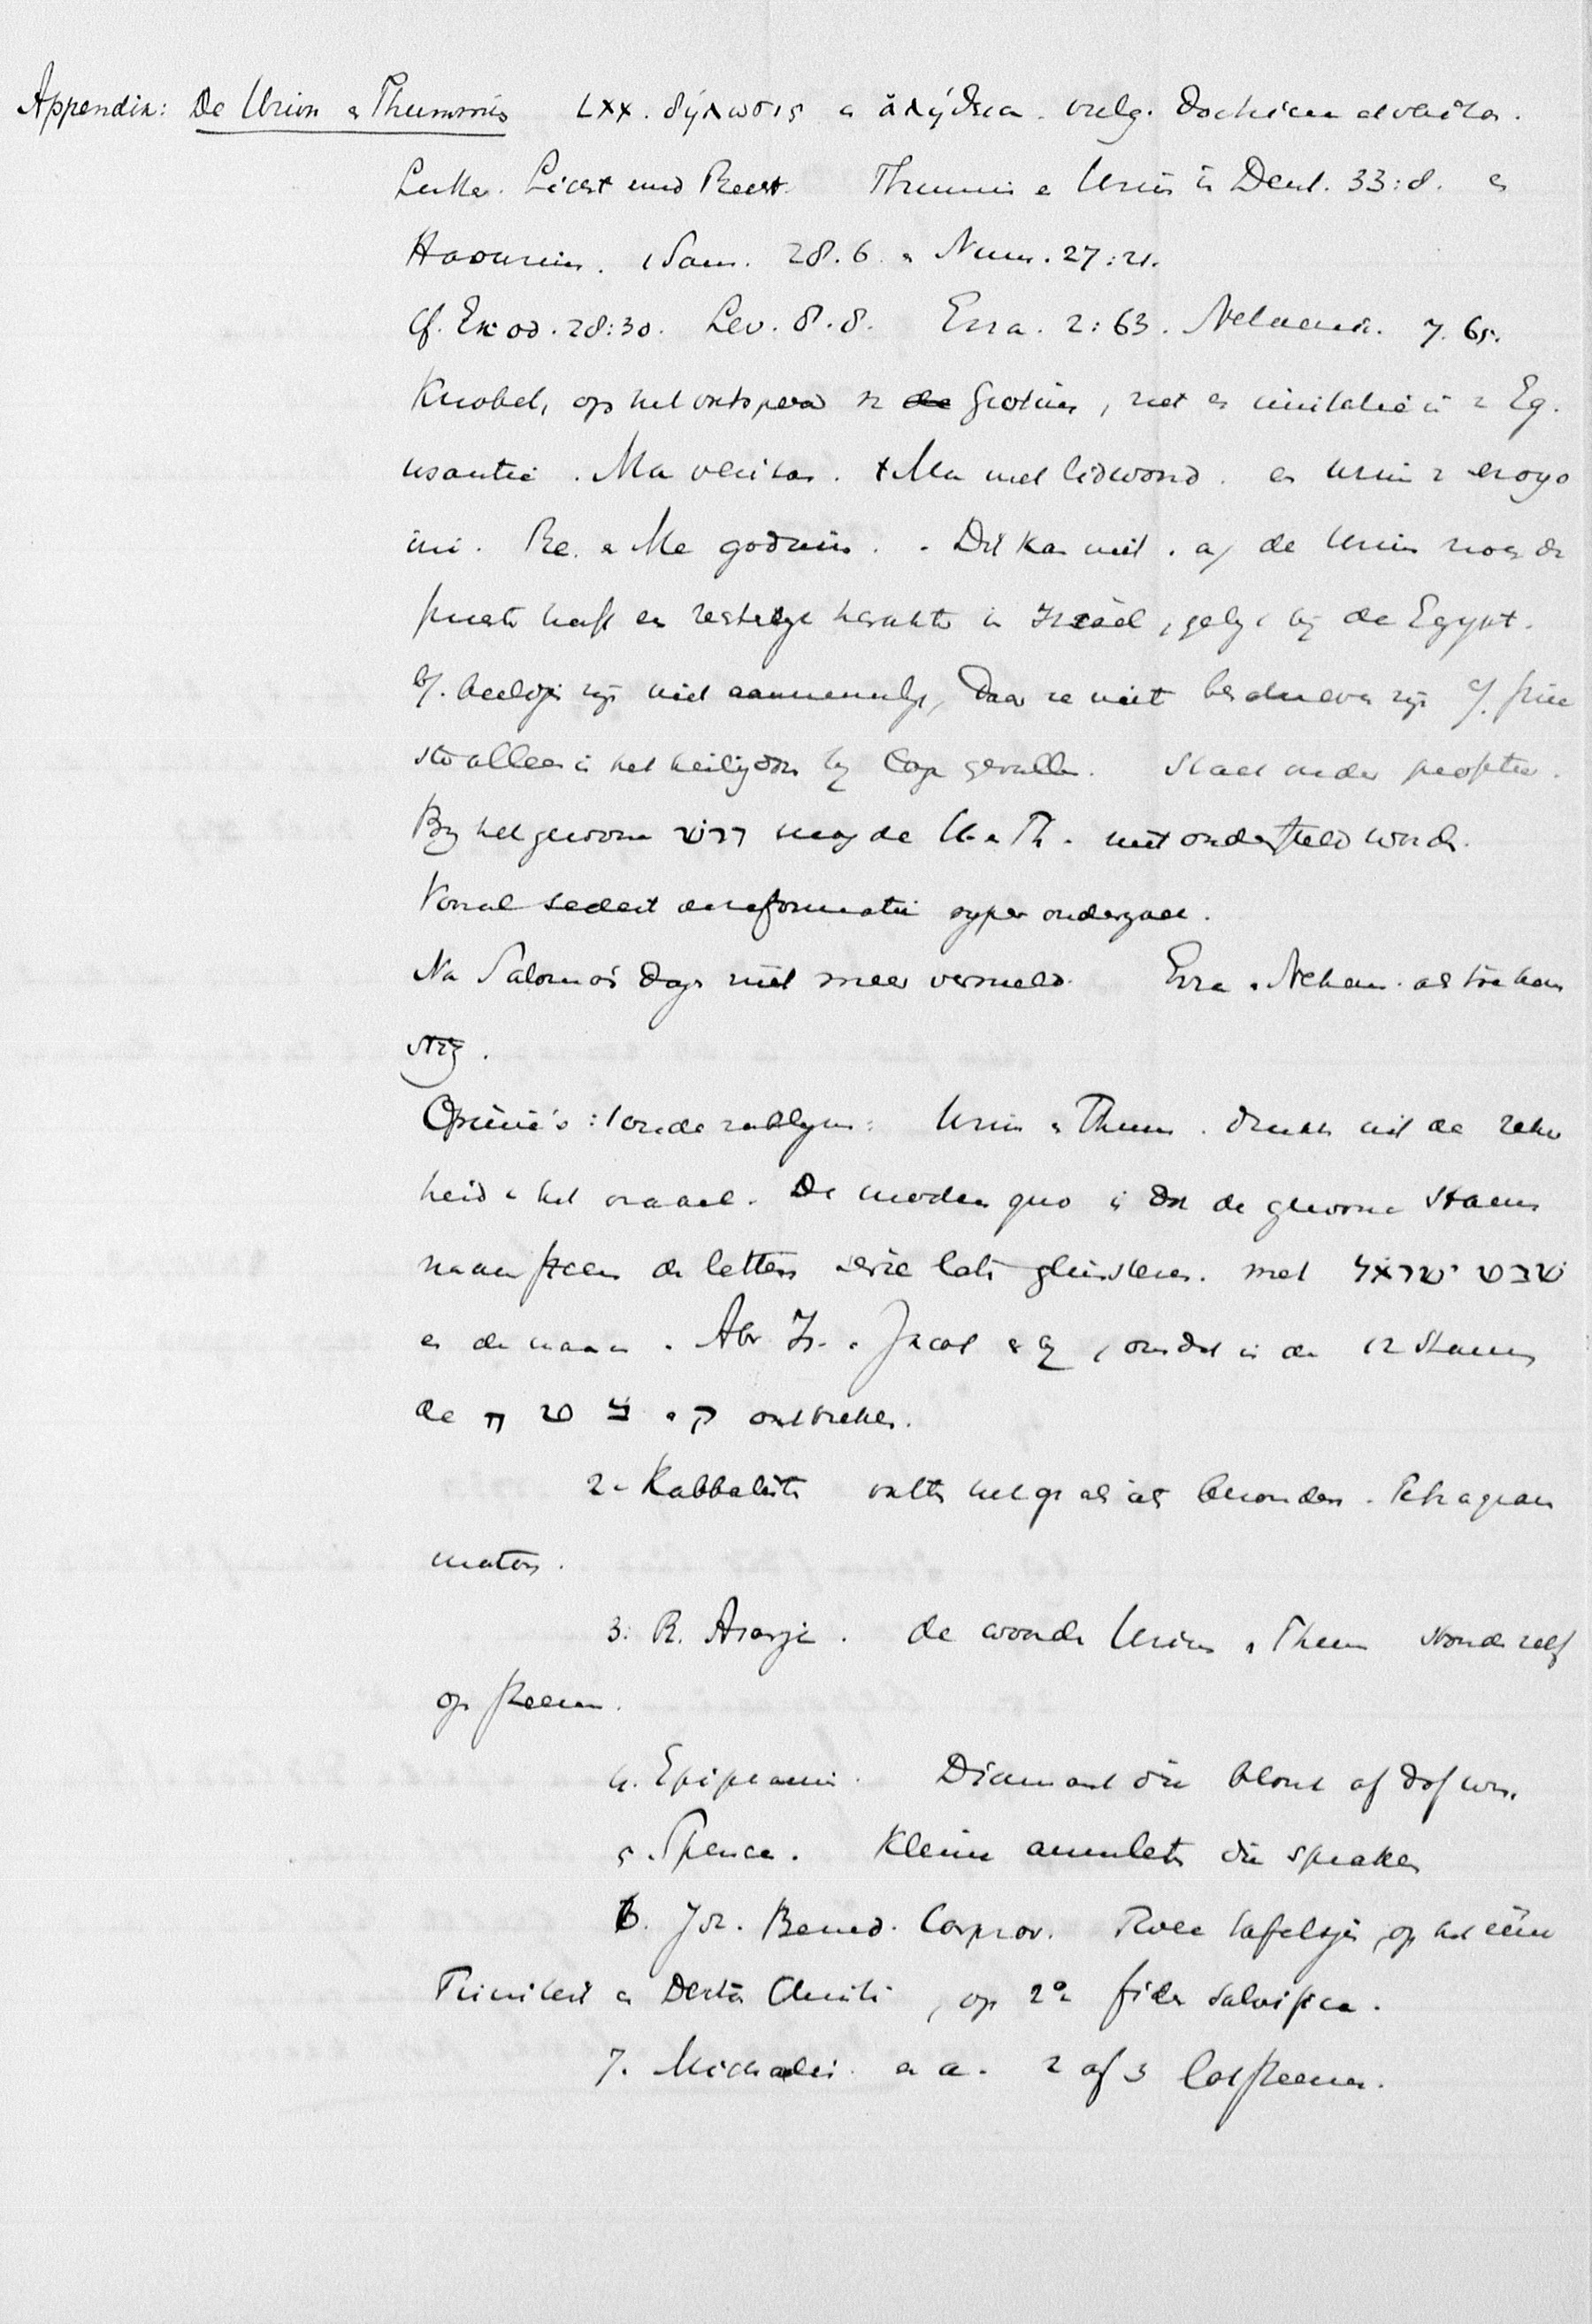 Appendix: De Urim & Thummim LXX. δήλωσις & ἀλήθεια. vulg. doctrina et veritas.
Luther. Licht und Recht. Thummim & Urim in Deut. 33:8. en
Haourim. 1 Sam. 28.6. & Num. 27:21.
Cf. Exod. 28:30. Lev. 8.8. Ezra. 2:63. Nehemia. 7.65.
Knobel, op het voetspoor v. Grotius, ziet er imitatie in v Eg.
usantie. Ma veritas. tMa met lidwoord. en Urim v
Re. & Me godin. Dit kan niet. a/ de Urim noch de
priester heeft en rechterlijk karakter in Israel, gelijk bij de Egypt.
b/. beeldjes zijn niet aannemelijk, daar ze niet beschreven zijn c/. prie
ster alleen in het heiligdom bij gevallen. Staat onder profetie.
By het gewone דרש mag de U. & Th. niet ondersteld worden.
Vooral sedert de reformatie onderzoek.
Na Salomo's dagen niet meer vermeld. Ezra & Nehem. als toekom
stig.
Opinie's: 1 oude rabbijnen: Urim & Thum. drukken uit de zeker
heid v het orakel. De modus quo is dat de gewone stam
naam steen de letters serie laat glinsteren. met שבטי ישראל
en de naam v. Abr Is. & Jacob er bij, omdat in de 12 stammen
de ח ט צ & ק ontbreken.
2. Kabbalisten vatten het op als iets bijzonders. Tetragram
maton.
3. R. Asarja. de woorden Urim & Thum stonden zelf
op steenen.
4. Epiphanius. Diamant die blonk of dof was.
5. Spencer. Kleine amulets die spraken
6. Joh. Bened. Carpzov. Twee tafeltjes, op het eéne
Triniteit & Deitas Christi, op 2e fides salvifica.
7. Michaelis. e a. 2 of 3 lotsteenen.